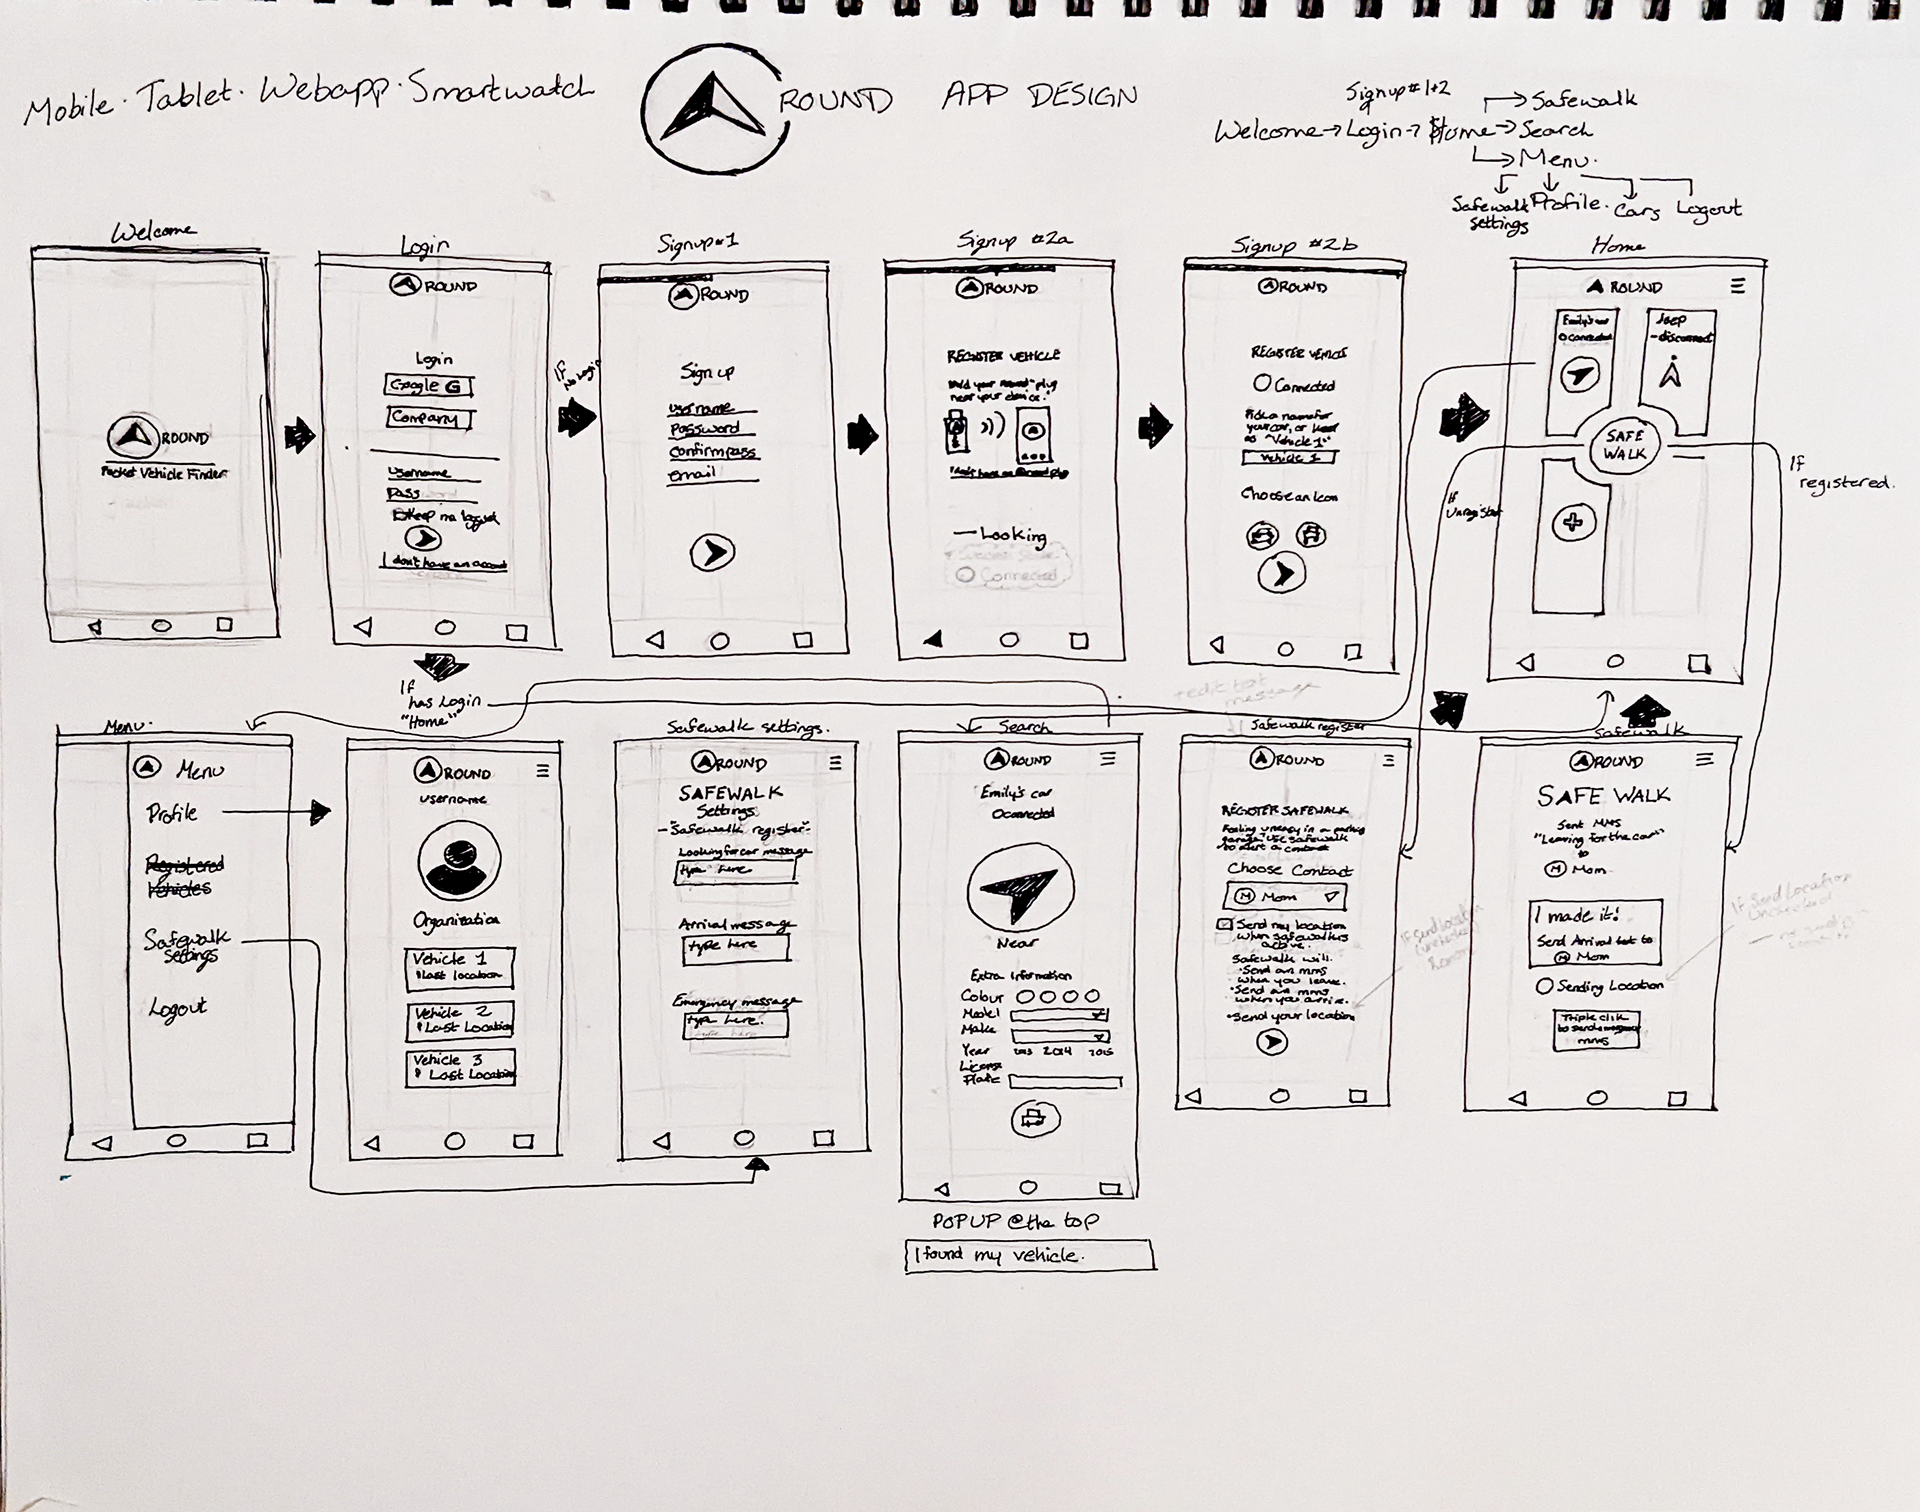 Mobile · Tablet · Webapp · Smartwatch
ROUND APP DESIGN
Signup #1+2
Safewalk
Welcome → Login → Home → Search
Menu.
Safewalk settings
Profile.
Cars
Logout
Welcome
ROUND
Pocket Vehicle Finder
Login
ROUND
Login
Google G
Company
username
Pass
Keep me logged
I don't have an account
If
No Login
Signup #1
ROUND
Sign up
username
Password
Confirm pass
email
Signup #2a
ROUND
REGISTER VEHICLE
Hold your round plug
near your device.
— Looking
Connected
Signup #2b
ROUND
REGISTER VEHICLE
Connected
Pick a name for
your car, or keep
as "Vehicle 1"
Vehicle 1
Choose an Icon
Home
ROUND
Emily's car
Connected
Jeep
- disconnect
SAFE
WALK
If
registered.
If
Unregister
If
has Login
"Home"
Menu.
Menu
Profile
Registered
Vehicles
Safewalk
Settings
Logout
ROUND
username
Organization
Vehicle 1
Last location
Vehicle 2
Last Location
Vehicle 3
Last Location
Safewalk settings.
ROUND
SAFEWALK
Settings
- "Safewalk register"-
Looking for car message
type here
Arrival message
type here
Emergency message
type here.
Search
ROUND
Emily's car
Connected
Near
Extra Information
Colour
Model
Make
Year 2013 2014 2015
License
Plate
POPUP @ the top
I found my vehicle.
+ edit text
message
Safewalk register
ROUND
REGISTER SAFEWALK
Feeling uneasy in a parking
garage? Use safewalk
to alert a contact
Choose Contact
M Mom
Send my location
when safewalk is
active.
Safewalk will
· Send an mms
when you leave.
· Send an mms
when you arrive.
· Send your location
If Send Location
Safewalk
ROUND
SAFE WALK
Sent MMS
"Leaving for the car"
to
M Mom
I made it!
Send Arrival text to
M Mom
Sending Location
Triple click
to send emergency
mms
If Send Location
Unchecked